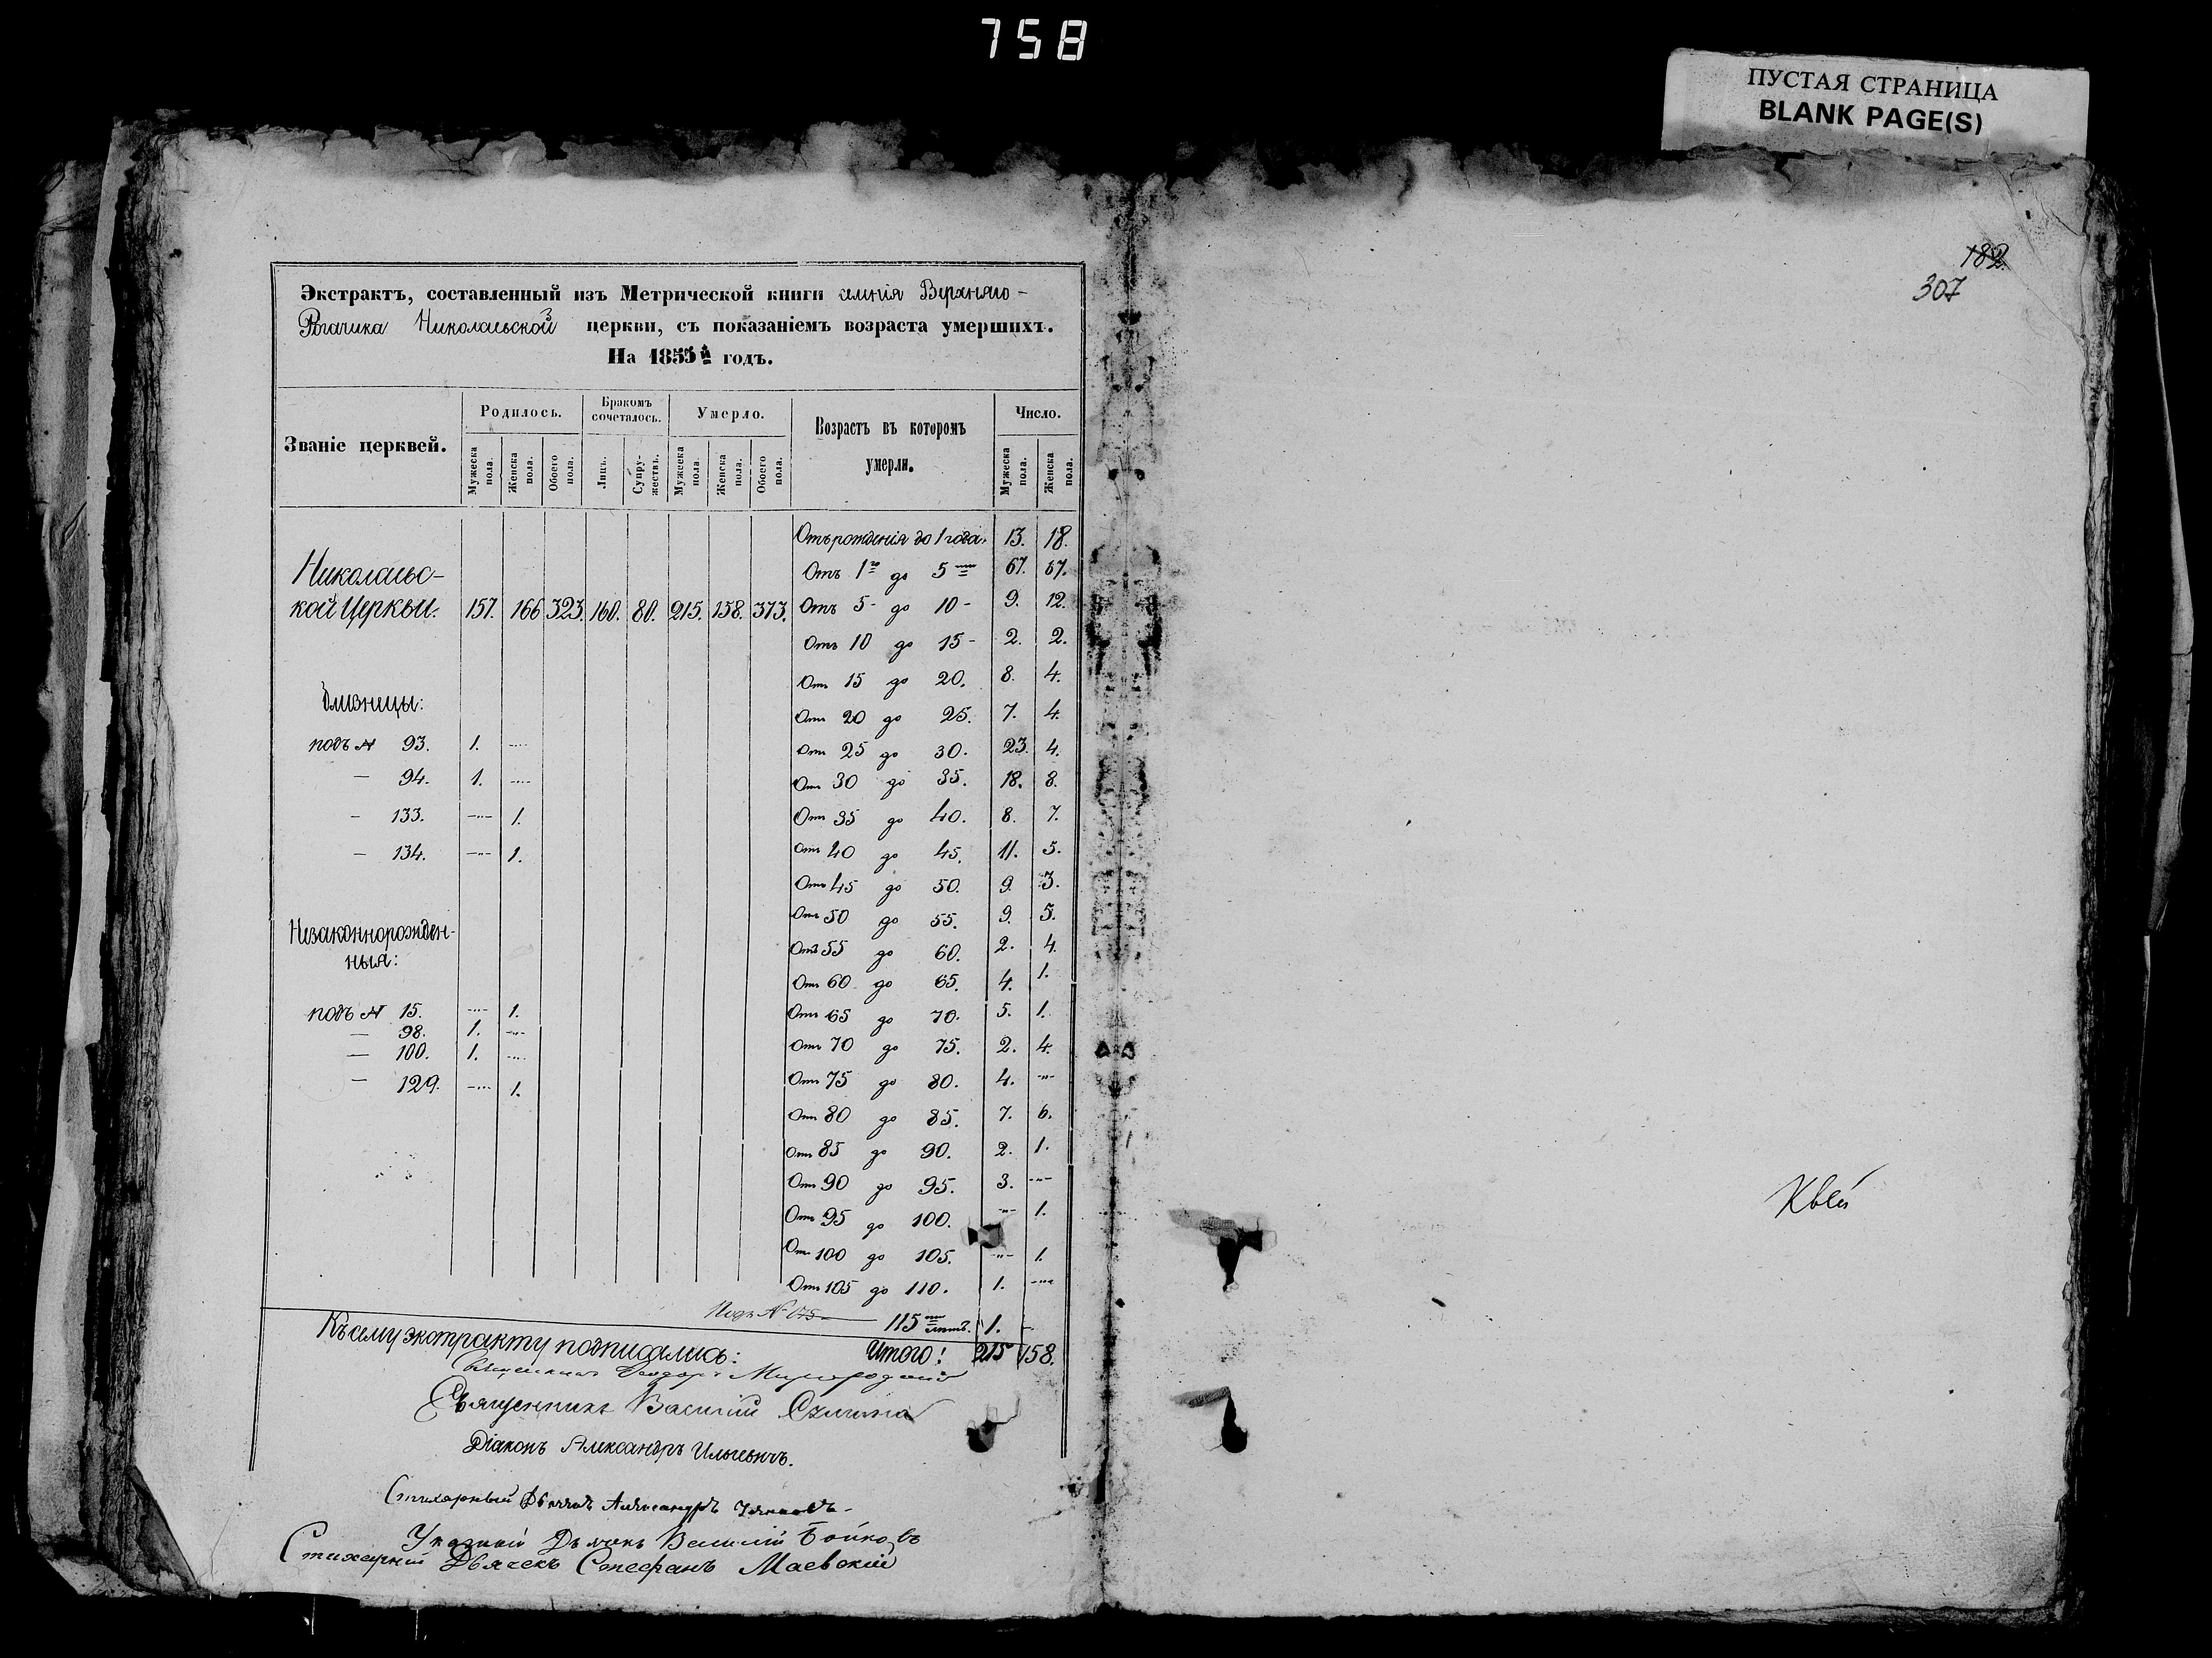 758
ПУСТАЯ СТРАНИЦА
BLANK PAGE(S)
182.
307
Экстрактъ, составленный изъ Метрической книги селенія Верхняго-
Рогачика Николаевской церкви, съ показаніемъ возраста умершихъ.
На 1855й годъ.
Званіе церквей. Родилось. Бракомъ сочеталось. Умерло. Возрастъ въ которомъ умерли. Число.
Мужеска пола. Женска пола. Обоего пола. Лицъ. Супружествъ. Мужеска пола. Женска пола. Обоего пола. Мужеска пола. Женска пола.
Отъ рожденія до 1 года. 13. 18.
Николаевс- Отъ 1го до 5ти 67. 67.
кой Церкви. 157. 166 323. 160. 80. 215. 158. 373. Отъ 5- до 10- 9. 12.
Отъ 10 до 15- 2. 2.
Отъ 15 до 20. 8. 4.
Близницы:
Отъ 20 до 25. 7. 4.
подъ № 93. 1. -"- Отъ 25 до 30. 23. 4.
— 94. 1. -"- Отъ 30 до 35. 18. 8.
— 133. -"- 1. Отъ 35 до 40. 8. 7.
— 134. -"- 1. Отъ 40 до 45. 11. 5.
Отъ 45 до 50. 9. 3.
Незаконнорожден- Отъ 50 до 55. 9. 5.
ныя: Отъ 55 до 60. 2. 4.
Отъ 60 до 65. 4. 1.
подъ № 15. -"- 1. Отъ 65 до 70. 5. 1.
— 98. 1. -"-
— 100. 1. -"- Отъ 70 до 75. 2. 4.
— 129. -"- 1. Отъ 75 до 80. 4. -"-
Отъ 80 до 85. 7. 6.
Отъ 85 до 90. 2. 1.
Отъ 90 до 95. 3. -"-
Отъ 95 до 100. -"- 1.
Отъ 100 до 105. -"- 1.
Отъ 105 до 110. 1. -"-
Подъ № 175 — 115ти лѣтъ. 1. -
Къ сему экстракту подписались: Итого: 215 158.
Священникъ Миргородскій
Священникъ Василій
Діаконъ Александръ Ильевичъ.
Стихарный Дьячокъ Александръ
Указный Дьячекъ Василій Бойковъ
Стихарный Дьячекъ Стефанъ Маевскій